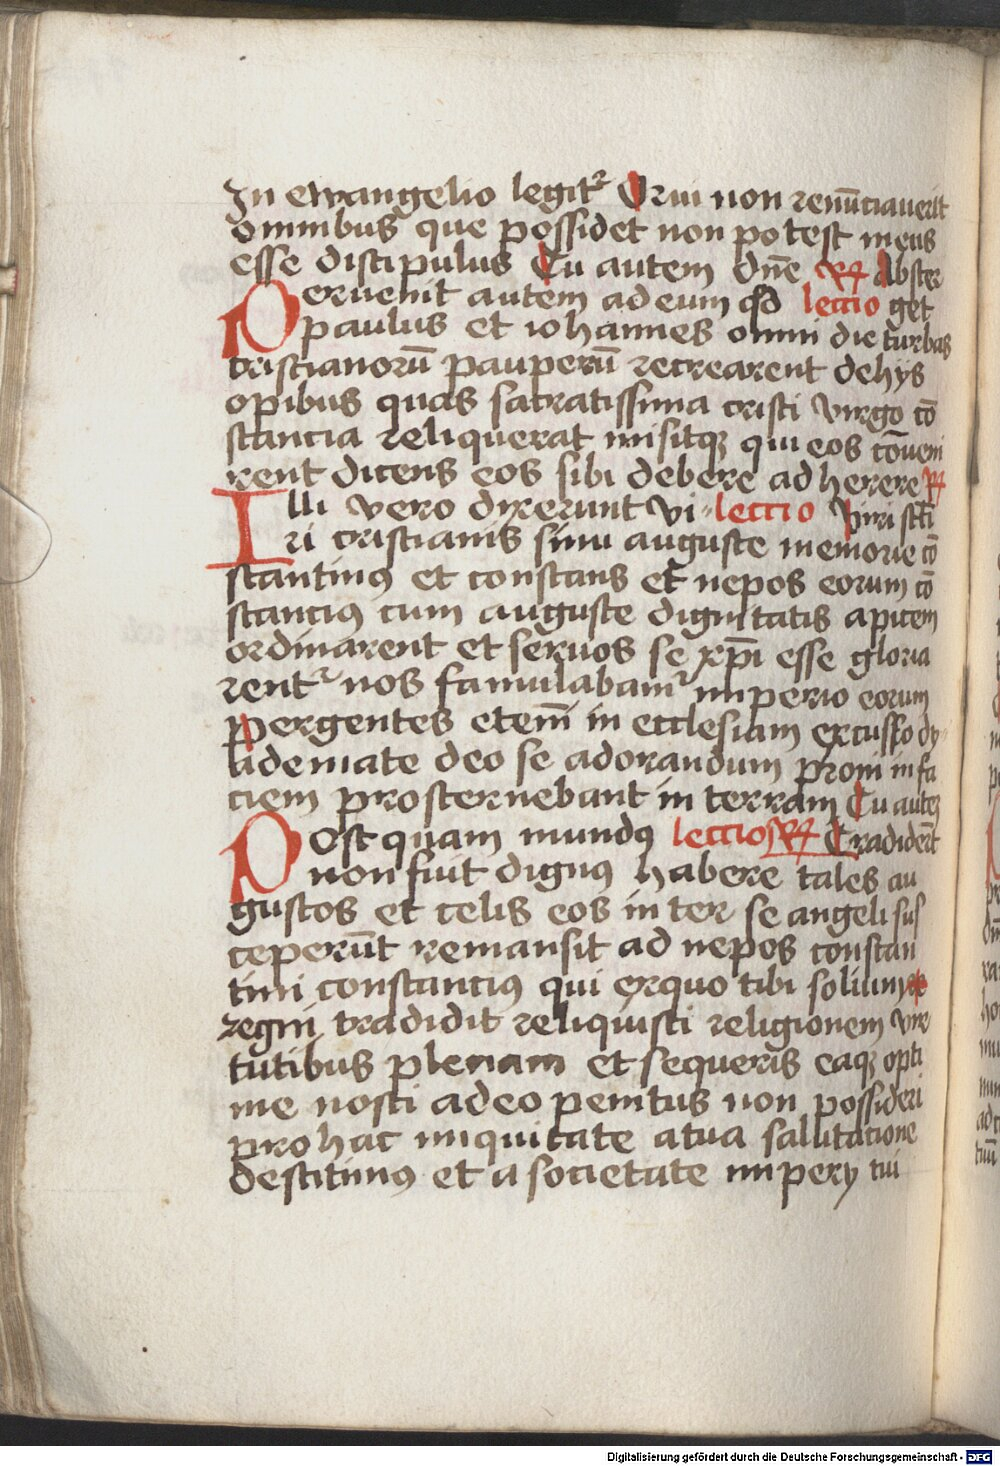 In ewangelio legitr Qui non renūciauerit
omnibus que possidet non potest meus
esse discipulus Tu autem dn̄e R Abster
Peruenit autem ad eum qd lectio get
paulus et iohannes omni die turbas
cristianorū pauperū recrearent de hys
opibus quas sacratissima cristi virgo cō
stancia reliquerat misitqꝫ qui eos cōueni
rent dicens eos sibi debere adherere R
Illi vero dixerunt vi- lectio Viri scti
ri cristianis simi auguste memorie cō
stantinꝯ et constans et nepos eorum cō
stanciꝯ cum auguste dignitatis apicem
ordinarent et seruos se xp̄i esse gloria
rentr nos famulabamr imperio eorum
pergentes eteni̅ in ecclesiam excusso dy-
ademate deo se adorandum proni in fa
ciem prosternebant in terram Tu autē
Postquam mundꝯ lectio R Tradider̄t
non fuit dignꝯ habere tales au
gustos et celis eos inter se angeli sus
ceperūt remansit ad nepos constan
tini constanciꝯ qui ex quo tibi solium
regni tradidit reliquisti religionem vir
tutibus plenam et sequeris eaqꝫ opti
me nosti a deo penitus non possideri
pro hac iniquitate a tua salutacione
destitimꝯ et a societate impery tui
Digitalisierung gefördert durch die Deutsche Forschungsgemeinschaft - DFG